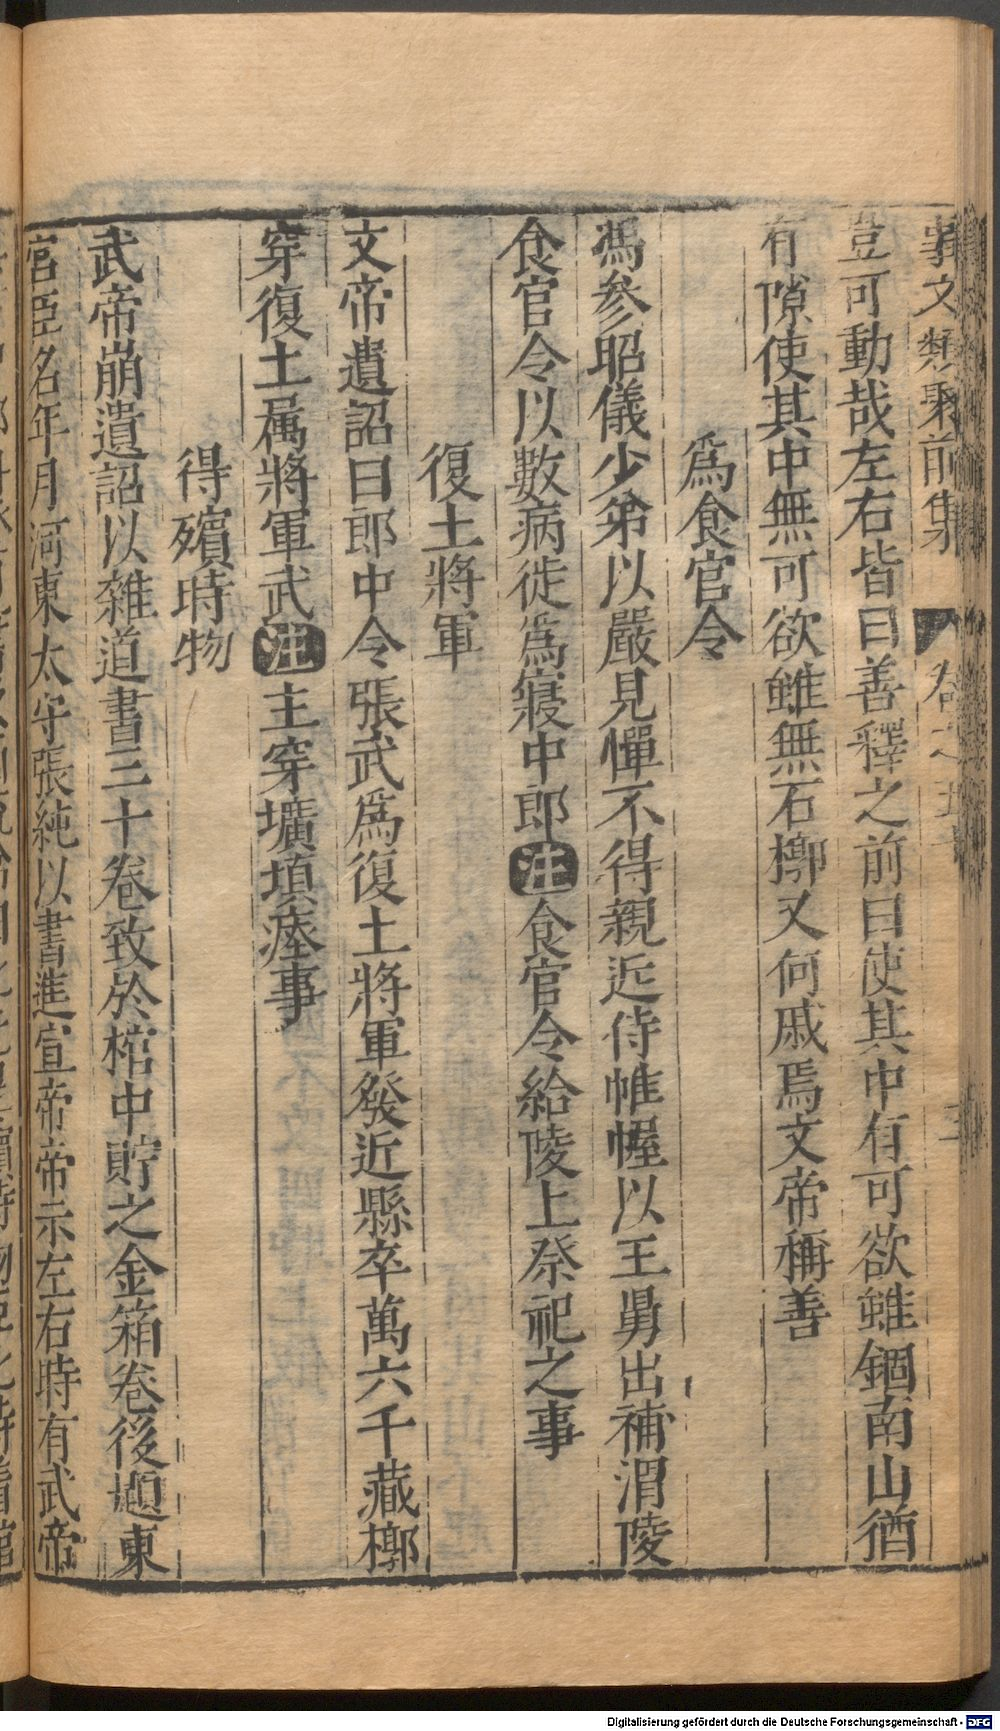 事文類聚前集 卷之五十
豈可動哉左右皆曰善釋之前曰使其中有可欲雖錮南山猶
有隙使其中無可欲雖無石槨又何戚焉文帝稱善
爲食官令
馮參昭儀少弟以嚴見憚不得親近侍帷幄以王舅出補渭陵
食官令以數病徙爲寢中郎注食官令給陵上祭祀之事
復土將軍
文帝遺詔曰郎中令張武爲復土將軍發近縣卒萬六千藏槨
穿復土属將軍武注主穿壙填瘞事
得殯時物
武帝崩遺詔以雜道書三十卷致於棺中貯之金箱卷後題東
宮臣名年月河東太守張純以書進宣帝帝示左右時有武帝
Digitalisierung gefördert durch die Deutsche Forschungsgemeinschaft - DFG